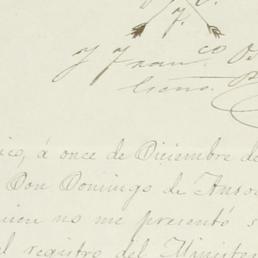 y Fran.co Os
ico, á once de Diciembre de
Don Domingo de Ansoa
uien no me presentó s
el registro del Minister